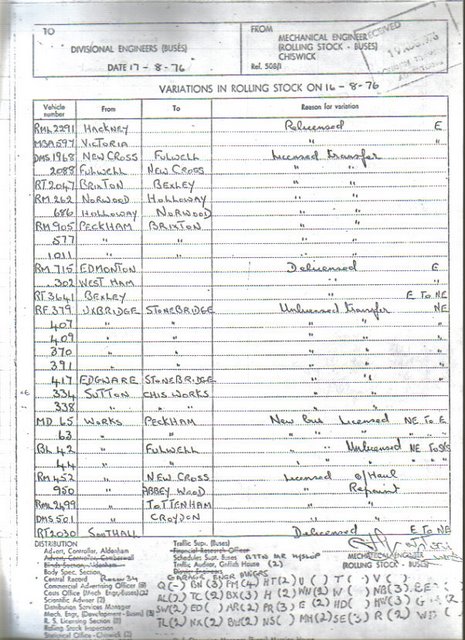 TO
FROM
MECHANICAL ENGINEER
(ROLLING STOCK - BUSES)
CHISWICK
Ref. 508/1
RECEIVED
DIVISIONAL ENGINEERS (BUSES)
DATE 17-8-76
VARIATIONS IN ROLLING STOCK ON 16-8-76
Vehicle number From To Reason for variation
RML2291 HACKNEY Relicensed E
MBA597 VICTORIA " "
DMS1968 NEW CROSS FULWELL Licensed transfer
2088 FULWELL NEW CROSS " "
RT2047 BRIXTON BEXLEY " "
RM262 NORWOOD HOLLOWAY " "
686 HOLLOWAY NORWOOD " "
RM905 PECKHAM BRIXTON " "
577 " " " "
1011 " " " "
RM715 EDMONTON Delicensed E
302 WEST HAM " "
RT3641 BEXLEY " E TO NE
RF379 UXBRIDGE STONEBRIDGE Unlicensed transfer NE
407 " " " " "
409 " " " " "
370 " " " " "
391 " " " " "
417 EDGWARE STONEBRIDGE " " "
334 SUTTON CHIS WORKS " " "
338 " " " " " "
MD65 WORKS PECKHAM New bus Licensed NE TO E
63 " " " " " "
BL42 " FULWELL " Unlicensed NE TO SE
44 " " " " "
RM452 " NEW CROSS Licensed O/Haul
950 " ABBEY WOOD " Repaint
RML2499 " TOTTENHAM " "
DMS501 " CROYDON " "
RT2030 SOUTHALL Delicensed E TO NE
DISTRIBUTION
Advert. Controller, Aldenham
Advert. Controller, Camberwell
Body Spec. Section
Central Record
Commercial Advertising Officer
Costs Office (Mech Engr. Buses)
Scientific Adviser (2)
Distribution Services Manager
Mech. Engr. (Development)
R. S. Licensing Section
Rolling Stock Inspection
Statistical Office - Chiswick (2)
Traffic Supt. (Buses)
Financial Research Officer
Schedules Supt. Buses ATTN MR HYSLOP
Traffic Auditor, Griffith House (2)
Division Engineers
GARAGE ENGR
MECHANICAL ENGINEER
(ROLLING STOCK - BUSES)